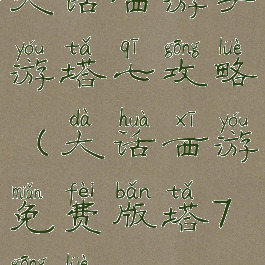 大话西游
yóu tǎ qī gōng lüè
游塔七攻略
dà huà xī yóu
（大话西游
miǎn fèi bǎn tǎ
免费版塔7
gōng lüè